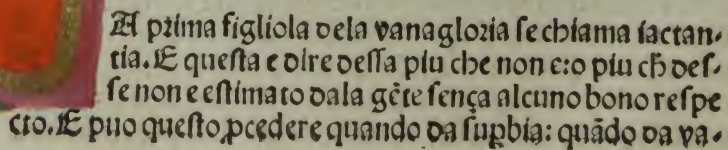 A prima figliola dela vanagloria se chiama iactan-
tia. E questa e dire dessa piu che non e: o piu ch̃ des-
se non e estimato dala gẽte sença alcuno bono respe
cto. E puo questo ꝓcedere quando da suꝑbia: quãdo da va-